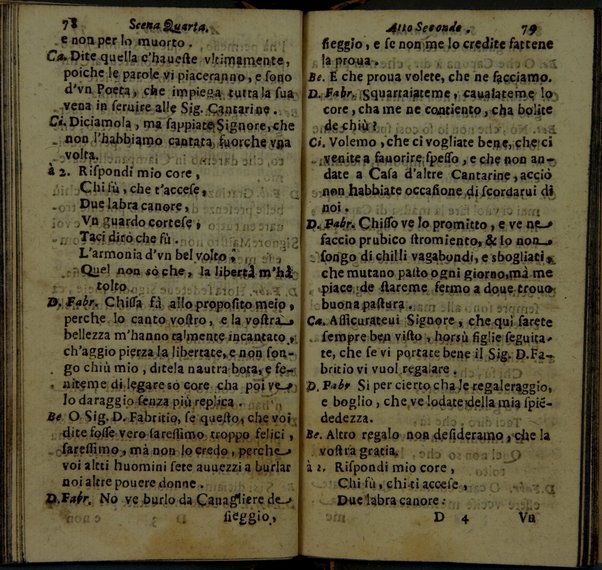 78 Scena Quarta.
e non per lo muorto.
Ca. Dite quella c'haueste vltimamente,
poiche le parole vi piaceranno, e sono
d'vn Poeta, che impiega tutta la sua
vena in seruire alle Sig. Cantarine.
Ci. Diciamola, ma sappiate Signore, che
non l'habbiamo cantata fuorche vna
volta.
à 2. Rispondi mio core,
Chi fù, che t'accese,
Due labra canore,
Vn guardo cortese,
Taci dirò che fù.
L'armonia d'vn bel volto,
Quel non sò che, la libertà m'hà
tolto
D. Fabr. Chissa fà allo proposito meio,
perche lo canto vostro, e la vostra
bellezza m'hanno talmente incantato,
ch'aggio pierza la libertate, e non son-
go chiù mio, ditela nautra bota, e fe-
niteme di legare sò core cha poi ve
lo daraggio senza più replica.
Be O Sig. D. Fabritio, se questo, che voi
dite fosse vero saressimo troppo felici,
saressimo, mà non lo credo, perche
voi altri huomini sete auuezzi a burlar
noi altre pouere donne.
D. Fabr. No ve burlo da Canagliere de
sieggio,
Atto Secondo. 79
sieggio, e se non me lo credite fattene
la proua.
Be. E che proua volete, che ne facciamo.
D. Fabr. Squartaiateme, cauaiateme lo
core, cha me ne contiento, cha bolite
de chiù?
Ci. Volemo, che ci vogliate bene, che ci
venite a fauorire spesso, e che non an-
date a Casa d'altre Cantarine, acciò
non habbiate occasione di scordarui di
noi.
D. Fabr. Chisso ve lo promitto, e ve ne
faccio prubico stromiento, & Io non
songo di chilli vagabondi, e sbogliati,
che mutano pasto ogni giorno, mà me
piace de stareme fermo a doue trouo
buona pastura.
Ca. Assicurateui Signore, che quì sarete
sempre ben visto, horsù figlie seguita-
te, che se vi portate bene il Sig. D. Fa-
britio vi vuol regalare.
D. Fabr Si per cierto cha le regaleraggio,
e boglio, che ve lodate della mia spie-
dedezza.
Be. Altro regalo non desideramo, che la
vostra gratia.
à 2. Rispondi mio core,
Chi fù, chi ti accese,
Due labra canore.
D 4 Vn